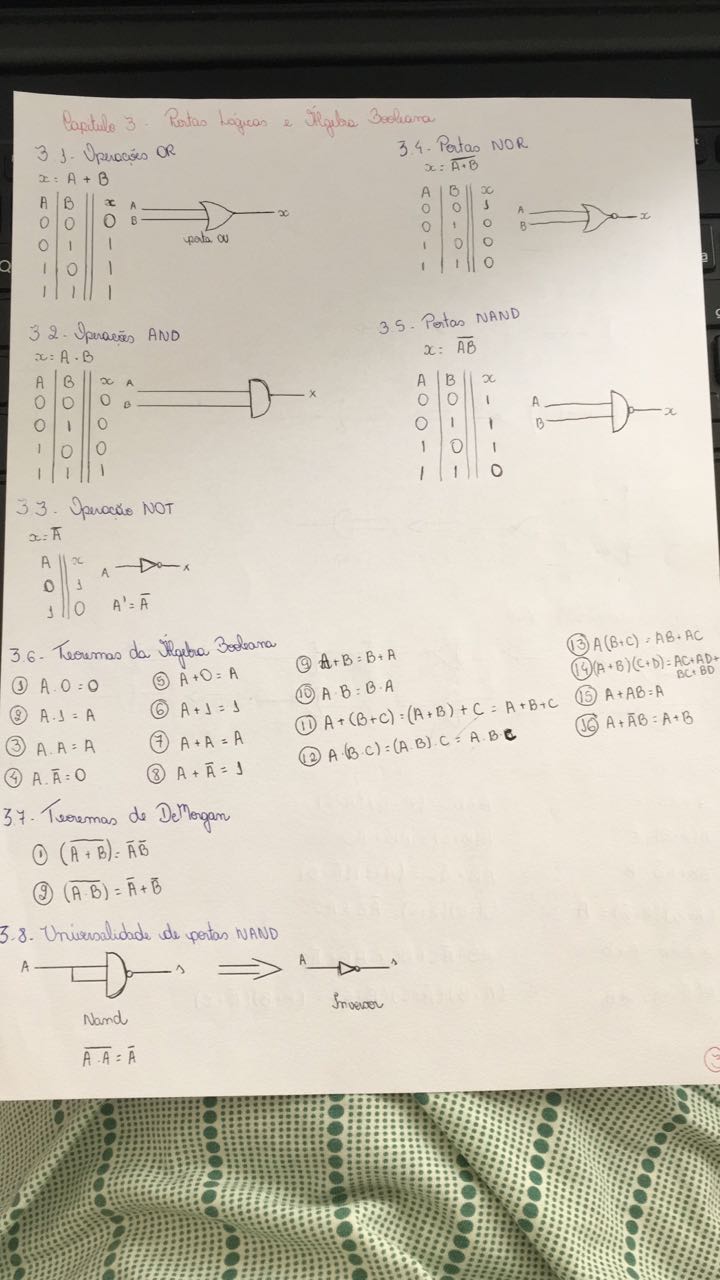 Capítulo 3 - Portas Lógicas e Álgebra Booleana
3.1- Operações OR
x = A + B
A B x
0 0 0
0 1 1
1 0 1
1 1 1
A
B
x
porta OU
3.2- Operações AND
x = A · B
A B x
0 0 0
0 1 0
1 0 0
1 1 1
A
B
x
3.3- Operação NOT
x = A̅
A x
0 1
1 0
A
x
A' = A̅
3.4- Portas NOR
x = A̅+̅B̅
A B x
0 0 1
0 1 0
1 0 0
1 1 0
A
B
x
3.5- Portas NAND
x = A̅B̅
A B x
0 0 1
0 1 1
1 0 1
1 1 0
A
B
x
3.6- Teoremas da Álgebra Booleana
① A.0 = 0
② A.1 = A
③ A.A = A
④ A.A̅ = 0
⑤ A+0 = A
⑥ A+1 = 1
⑦ A+A = A
⑧ A+A̅ = 1
⑨ A+B = B+A
⑩ A·B = B·A
⑪ A+(B+C) = (A+B)+C = A+B+C
⑫ A·(B·C) = (A.B).C = A.B.C
⑬ A(B+C) = AB+AC
⑭ (A+B)(C+D) = AC+AD+
BC+BD
⑮ A+AB = A
⑯ A+A̅B = A+B
3.7- Teoremas de DeMorgan
① (A̅+̅B̅) = A̅ B̅
② (A̅.̅B̅) = A̅ + B̅
3.8- Universalidade de portas NAND
A
s
A
s
Nand
Inversor
A̅.̅A̅ = A̅
3